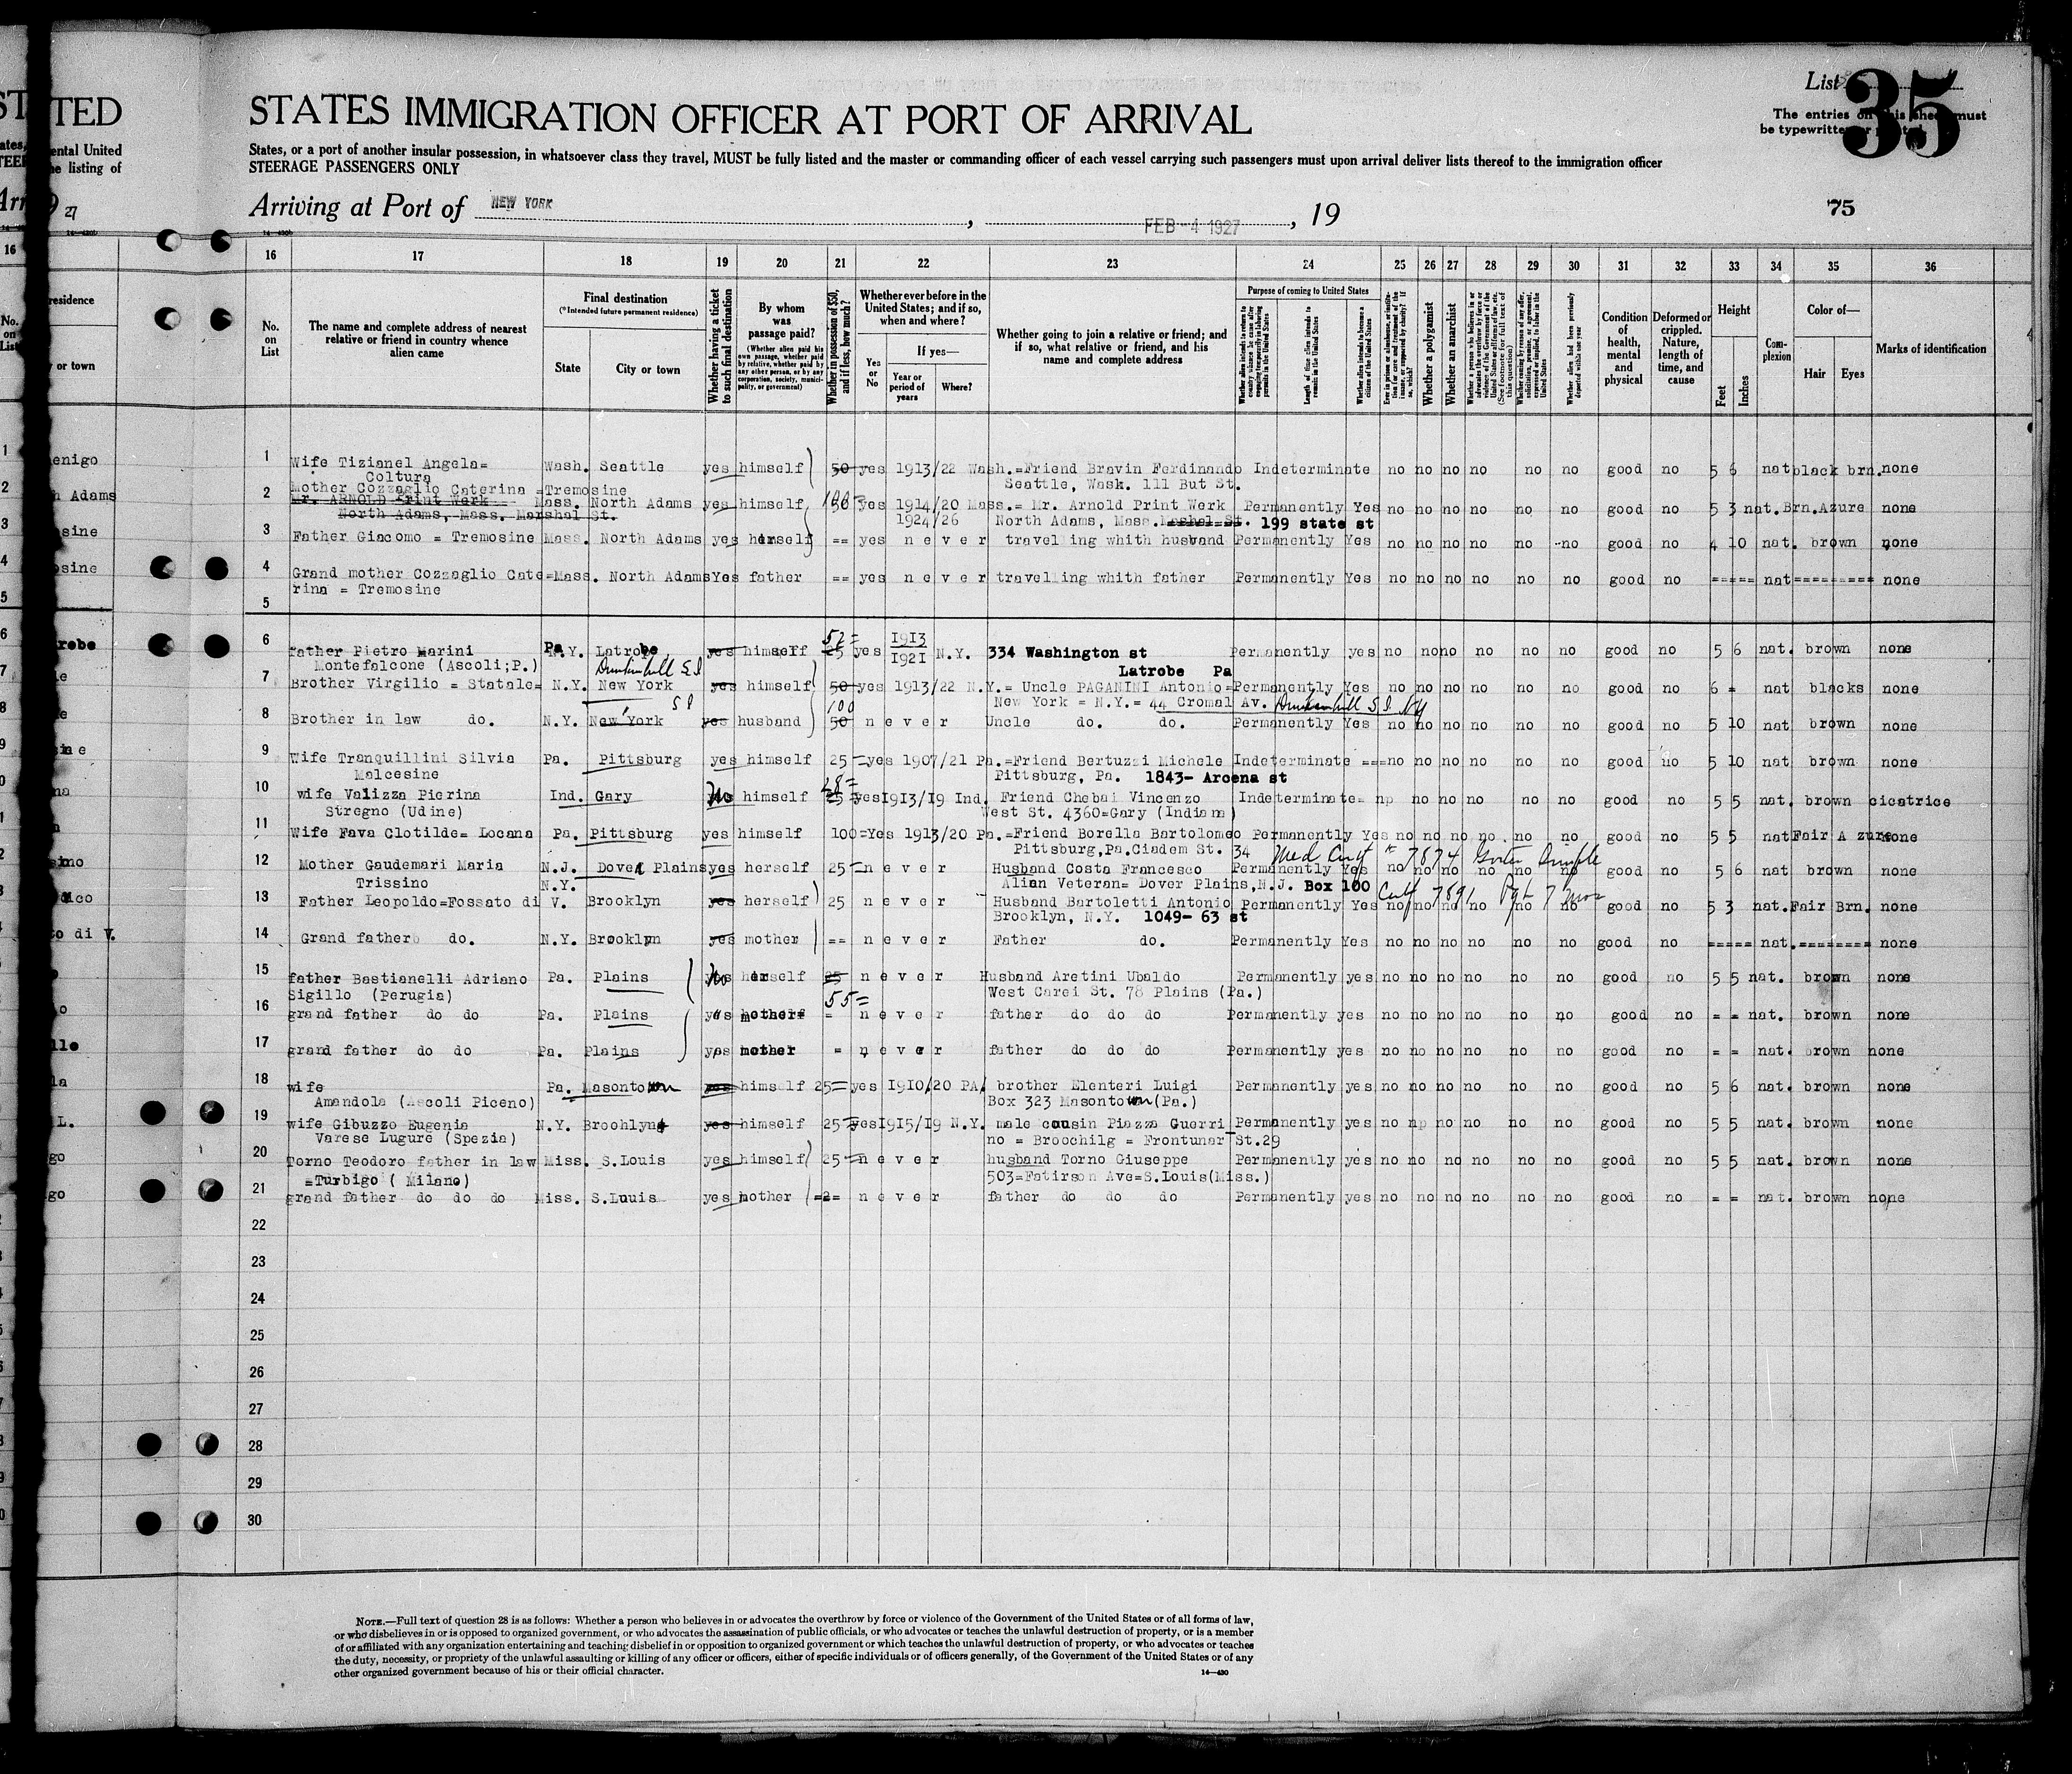 List
35
The entries on this sheet must
be typewritten or printed
TED
STATES IMMIGRATION OFFICER AT PORT OF ARRIVAL
ental United
he listing of
States, or a port of another insular possession, in whatsoever class they travel, MUST be fully listed and the master or commanding officer of each vessel carrying such passengers must upon arrival deliver lists thereof to the immigration officer
STEERAGE PASSENGERS ONLY
Arriving at Port of NEW YORK , FEB -4 1927 , 19
75
27
16 17 18 19 20 21 22 23 24 25 26 27 28 29 30 31 32 33 34 35 36
No. on List
The name and complete address of nearest relative or friend in country whence alien came
Final destination
(*Intended future permanent residence)
State
City or town
Whether having a ticket to such final destination
By whom was passage paid?
(Whether alien paid his own passage, whether paid by relative, whether paid by any other person, or by any corporation, society, municipality, or government)
Whether in possession of $50, and if less, how much?
Whether ever before in the United States; and if so, when and where?
Yes or No
If yes—
Year or period of years
Where?
Whether going to join a relative or friend; and if so, what relative or friend, and his name and complete address
Purpose of coming to United States
Length of time alien intends to remain in the United States
Whether alien intends to become a citizen of the United States
Whether a polygamist
Whether an anarchist
Condition of health, mental and physical
Deformed or crippled. Nature, length of time, and cause
Height
Feet
Inches
Complexion
Color of—
Hair
Eyes
Marks of identification
1 Wife Tizianel Angela= Wash. Seattle yes himself 50 yes 1913/22 Wash.=Friend Bravin Ferdinando Indeterminate no no no no no no good no 5 6 nat black brn. none
Coltura Seattle, Wask. 111 But St.
2 Mother Cozzaglio Caterina =Tremosine
Mr. ARNOLD Print Werk Mass. North Adams yes himself 100= yes 1914/20 Mass.= Mr. Arnold Print Werk Permanently Yes no no no no no no good no 5 3 nat. Brn. Azure none
North Adams, Mass. Marshal St. 1924/26 North Adams, Mass. Mashal St. 199 state st
3 Father Giacomo = Tremosine Mass. North Adams yes herself == yes never travelling whith husband Permanently Yes no no no no no no good no 4 10 nat. brown none
4 Grand mother Cozzaglio Cate=Mass. North Adams Yes father == yes never travelling whith father Permanently Yes no no no no no no good no ===== nat========= none
rina = Tremosine
5
6 father Pietro Marini Pa. Latrobe yes himself 52= 25 yes 1913 1921 N.Y. 334 Washington st Permanently yes no no no no no no good no 5 6 nat. brown none
Montefalcone (Ascoli;P.) Latrobe Pa
7 Brother Virgilio = Statale= N.Y. New York yes himself 50 yes 1913/22 N.Y.= Uncle PAGANINI Antonio=Permanently Yes no no no no no no good no 6 = nat blacks none
New York = N.Y.= 44 Cromal Av.
8 Brother in law do. N.Y. New York yes husband 100 50 never Uncle do. do. Permanently Yes no no no no no no good no 5 10 nat brown none
9 Wife Tranquillini Silvia Pa. Pittsburg yes himself 25= yes 1907/21 Pa.=Friend Bertuzzi Michele Indeterminate ===no no no no no no good no 5 10 nat brown none
Malcesine Pittsburg, Pa. 1843- Arcena st
10 wife Valizza Pierina Ind. Gary No himself 28= 25 yes 1913/19 Ind. Friend Chebai Vincenzo Indeterminate= np no no no no no good no 5 5 nat. brown cicatrice
Stregno (Udine) West St. 4360=Gary (Indiana)
11 Wife Fava Clotilde= Locana Pa. Pittsburg yes himself 100=Yes 1913/20 Pa.=Friend Borella Bartolomeo Permanently Yes no no no no no no good no 5 5 nat Fair A zure none
Pittsburg,Pa.Ciadem St. 34 Med Cert # 7874 Goiter
12 Mother Gaudemari Maria N.J. Dover Plains yes herself 25= never Husband Costa Francesco Permanently Yes no no no no no no good no 5 6 nat brown none
Trissino N.Y. Alian Veteran= Dover Plains,N.J. Box 100 Cert 7891
13 Father Leopoldo=Fossato di V. Brooklyn yes herself 25 never Husband Bartoletti Antonio Permanently Yes no no no no no no good no 5 3 nat. Fair Brn. none
Brooklyn, N.Y. 1049- 63 st
14 Grand father do. N.Y. Brooklyn yes mother == never Father do. Permanently Yes no no no no no no good no ===== nat.======== none
15 father Bastianelli Adriano Pa. Plains No herself 25 never Husband Aretini Ubaldo Permanently yes no no no no no no good no 5 5 nat. brown none
Sigillo (Perugia) 55= West Carei St. 78 Plains (Pa.)
16 grand father do do Pa. Plains yes mother = never father do do do Permanently yes no no no no no no good no = = nat. brown none
17 grand father do do Pa. Plains yes mother = never father do do do Permanently yes no no no no no no good no = = nat. brown none
18 wife Pa. Masontown yes himself 25= yes 1910/20 PA. brother Elenteri Luigi Permanently yes no no no no no no good no 5 6 nat. brown none
Amandola (Ascoli Piceno) Box 323 Masontown(Pa.)
19 wife Gibuzzo Eugenia N.Y. Broohlyn yes himself 25= yes 1915/19 N.Y. male cousin Piazza Guerri Permanently yes no np no no no no good no 5 5 nat. brown none
Varese Lugure (Spezia) no = Broochilg = Frontunar St.29
20 Torno Teodoro father in law Miss. S.Louis yes himself 25= never husband Torno Giuseppe Permanently yes no no no no no no good no 5 5 nat. brown none
=Turbigo ( Milano) 503=Fatirson Ave=S.Louis(Miss.)
21 grand father do do do Miss. S.Luuis yes mother =2= never father do do do Permanently yes no no no no no no good no = = nat. brown none
22
23
24
25
26
27
28
29
30
NOTE.—Full text of question 28 is as follows: Whether a person who believes in or advocates the overthrow by force or violence of the Government of the United States or of all forms of law,
or who disbelieves in or is opposed to organized government, or who advocates the assassination of public officials, or who advocates or teaches the unlawful destruction of property, or is a member
of or affiliated with any organization entertaining and teaching disbelief in or opposition to organized government or which teaches the unlawful destruction of property, or who advocates or teaches
the duty, necessity, or propriety of the unlawful assaulting or killing of any officer or officers, either of specific individuals or of officers generally, of the Government of the United States or of any
other organized government because of his or their official character.
14—430